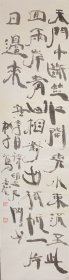 天門中斷楚江開碧水東流至此
回兩岸青山相對出孤帆一片
日邊來